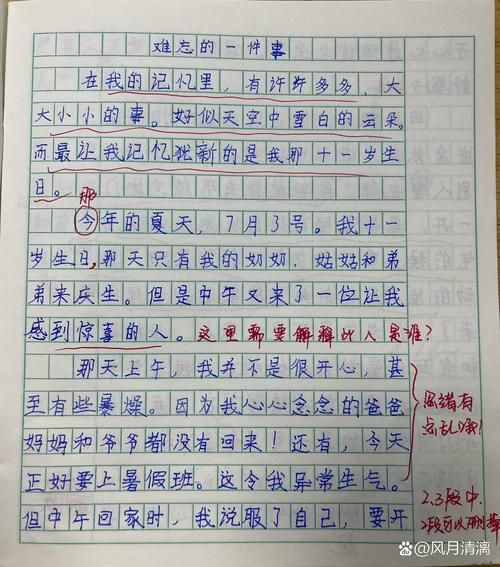 难忘的一件事
在我的记忆里，有许许多多、大
大小小的事。好似天空中雪白的云朵。
而最让我记忆犹新的是我那十一岁生
日。
那
今年的夏天，7月3号。我十一
岁生日，那天只有我的奶奶、姑姑和弟
弟来庆生。但是中午又来了一位让我
感到惊喜的人。这里需要解释此人是谁？
那天上午，我并不是很开心，甚
至有些暴燥。因为我心心念念的爸爸
妈妈和爷爷都没有回来！还有，今天
正好要上暑假班。这令我异常生气。
但中午回家时，我说服了自己，要开
思绪有
点乱哦！
2.3段中，
2段可以删掉
百家号/风月清漓